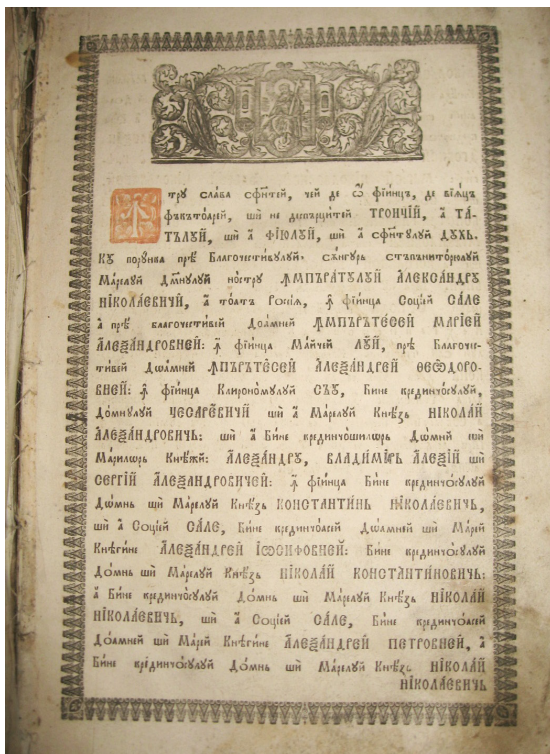 Ꙟтру сла́ва сфи́нтей, чей де ѿ фїи́нцъ, де вїѧ́цъ
фъкъто́арей, шѝ не деспърци́тей ТРО́ИЧІЙ, А҆ ТА́-
ТЪЛУЙ, шѝ а҆ ФІ́ЮЛУЙ, шѝ а҆ сфи́нтулуй ДУХЬ.
Ку порꙋ́нка прѣ̀ Благочести́вулуй, си́нгурь стъпънито́рюлуй
Ма́релуй До́мнулуй но́стру ꙞМПЪРА́ТУЛУЙ А҆ЛЕѮА́НДРУ
НІКОЛА́ЕВИЧЙ, а҆ то́атъ Росі́а, ꙟ҆ фїи́нца Соці́ей СА́ЛЕ
а҆ прѣ̀ благочести́вей Доа́мней ꙞМПЪРЪТЕ́СЕЙ МАРІ́ЕЙ
А҆ЛЕѮА́НДРОВНЕЙ: ꙟ҆ фїи́нца Ма́йчей ЛУ́Й, прѣ̀ Благочес-
ти́вей Дѡа́мней ꙞПЪРЪТЕ́СЕЙ А҆ЛЕѮА́НДРЕЙ ѲЕѠ́ДОРО-
ВНЕЙ: ꙟ҆ фїи́нца Клирономулуй СЪ́У, Би́не крединчо́сулуй,
До́мнулуй ЧЕСАРЕ́ВИЧЙ шѝ а҆ Ма́релуй Кнѣ́зь НІКОЛА́Й
А҆ЛЕѮА́НДРОВИЧЬ: шѝ а҆ Би́не крединчо́шилѡрь Дѡ́мней шѝ
Ма́рилѡрь Кнѣ́жй: А҆ЛЕѮА́НДРУ, ВЛАДИ́МІРЬ А҆ЛЕѮІ́Й шѝ
СЕРГІ́Й А҆ЛЕѮА́НДРОВИЧЕЙ: ꙟ҆ фїи́нца Би́не крединчо́сулуй
Дѡ́мнь шѝ Ма́релуй Кнѣ́зь КОНСТАНТИ́НЬ НІКОЛА́ЕВИЧЬ,
шѝ а҆ Соці́ей СА́ЛЕ, Би́не крединчо́асей Дѡа́мней шѝ Ма́рей
Кнѣги́не А҆ЛЕѮА́НДРЕЙ ІѠ́СИФОВНЕЙ: Би́не крединчо́сулуй
До́мнь шѝ Ма́релуй Кнѣ́зь НІКОЛА́Й КОНСТАНТИ́НОВИЧЬ:
а҆ Би́не крединчо́сулуй До́мнь шѝ Ма́релуй Кнѣ́зь НІКОЛА́Й
НІКОЛА́ЕВИЧЬ, шѝ а҆ Соці́ей СА́ЛЕ, Би́не крединчо́асей
Доа́мней шѝ Ма́рей Кнѣги́не А҆ЛЕѮА́НДРЕЙ ПЕТРО́ВНЕЙ, а҆
Би́не креди́нчо́сулуй До́мнь шѝ Ма́релуй Кнѣ́зь НІКОЛА́Й
НІКОЛА́ЕВИЧЬ